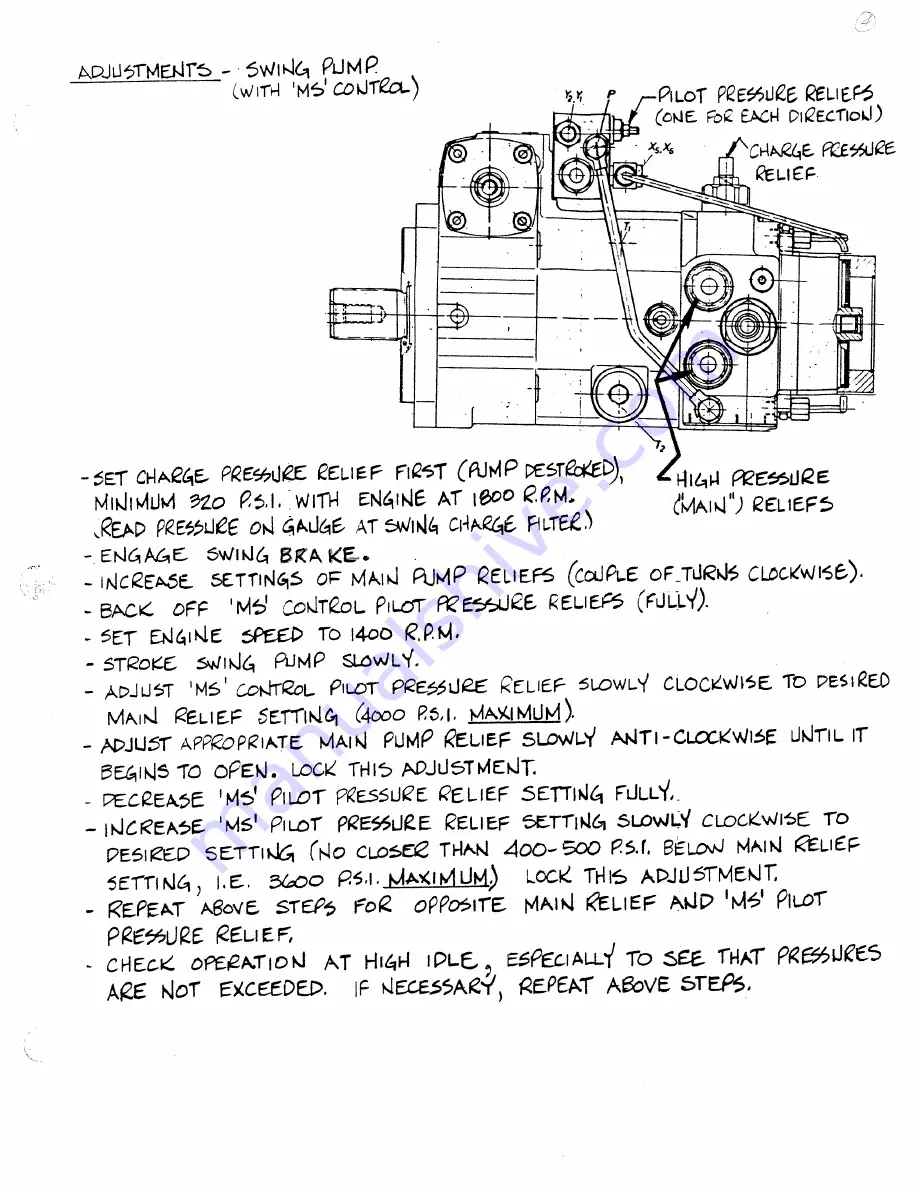 2
ADJUSTMENTS - SWING PUMP
(WITH 'MS' CONTROL)
Y2, Y1 P
PILOT PRESSURE RELIEFS
(ONE FOR EACH DIRECTION)
X5, X6
CHARGE PRESSURE
RELIEF
T1
T2
- SET CHARGE PRESSURE RELIEF FIRST (PUMP DESTROKED),
MINIMUM 320 P.S.I. WITH ENGINE AT 1800 R.P.M.
(READ PRESSURE ON GAUGE AT SWING CHARGE FILTER.)
HIGH PRESSURE
("MAIN") RELIEFS
- ENGAGE SWING BRAKE.
- INCREASE SETTINGS OF MAIN PUMP RELIEFS (COUPLE OF TURNS CLOCKWISE).
- BACK OFF 'MS' CONTROL PILOT PRESSURE RELIEFS (FULLY).
- SET ENGINE SPEED TO 1400 R.P.M.
- STROKE SWING PUMP SLOWLY.
- ADJUST 'MS' CONTROL PILOT PRESSURE RELIEF SLOWLY CLOCKWISE TO DESIRED
MAIN RELIEF SETTING (4000 P.S.I. MAXIMUM).
- ADJUST APPROPRIATE MAIN PUMP RELIEF SLOWLY ANTI-CLOCKWISE UNTIL IT
BEGINS TO OPEN. LOCK THIS ADJUSTMENT.
- DECREASE 'MS' PILOT PRESSURE RELIEF SETTING FULLY.
- INCREASE 'MS' PILOT PRESSURE RELIEF SETTING SLOWLY CLOCKWISE TO
DESIRED SETTING (NO CLOSER THAN 400-500 P.S.I. BELOW MAIN RELIEF
SETTING, I.E. 3600 P.S.I. MAXIMUM) LOCK THIS ADJUSTMENT.
- REPEAT ABOVE STEPS FOR OPPOSITE MAIN RELIEF AND 'MS' PILOT
PRESSURE RELIEF.
- CHECK OPERATION AT HIGH IDLE, ESPECIALLY TO SEE THAT PRESSURES
ARE NOT EXCEEDED. IF NECESSARY, REPEAT ABOVE STEPS.
manualshive.com